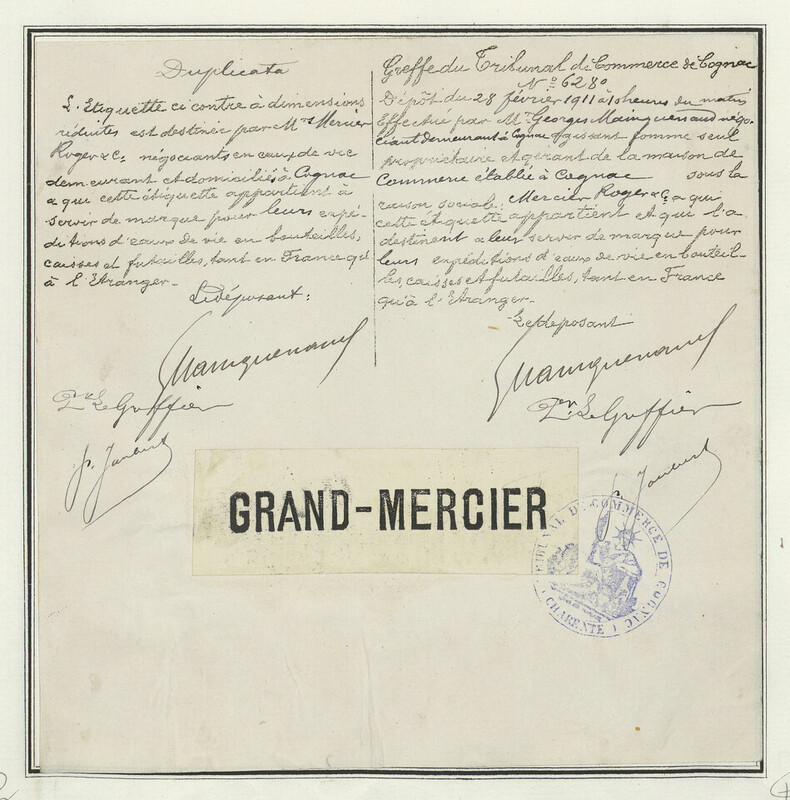 Duplicata
L'Etiquette ci contre à dimensions
réduites est destinée par Mrs Mercier
Roger & Cie négociants en eaux de vie
demeurant et domiciliés à Cognac
a que cette étiquette appartient à
servir de marque pour leurs expé-
ditions d'eaux de vie en bouteilles,
caisses et futailles, tant en France qu'
à l'Etranger.
Le déposant:
Mainguenaud
Pr Le Greffier
p. Joubert
Greffe du Tribunal de Commerce de Cognac
No 6280
Dépôt du 28 février 1911 à 10 heures du matin
Effectué par Mr Georges Mainguenaud négo-
ciant demeurant à Cognac agissant comme seul
propriétaire et gérant de la maison de
Commerce établie à Cognac sous la
raison sociale: Mercier Roger & Cie a qui
cette étiquette appartient et qui l'a
destinent a leur server de marque pour
leurs expéditions d'eaux de vie en bouteil-
les, caisses et futailles, tant en France
qu'à l'Etranger.
Le déposant
Mainguenaud
Pr Le Greffier
p. Joubert
GRAND-MERCIER
TRIBUNAL DE COMMERCE DE COGNAC
(CHARENTE)